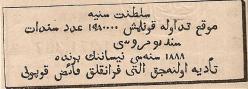 سلطنت سنیه
موقع تداوله قونلمش ١٩٨٠٠٠٠ عدد سندات
سندنومروسی
١٨٨٨ سنه‌سی نیساننك برنده
تأدیه اولنه‌جق التی فرانقلق فائض قوپونی